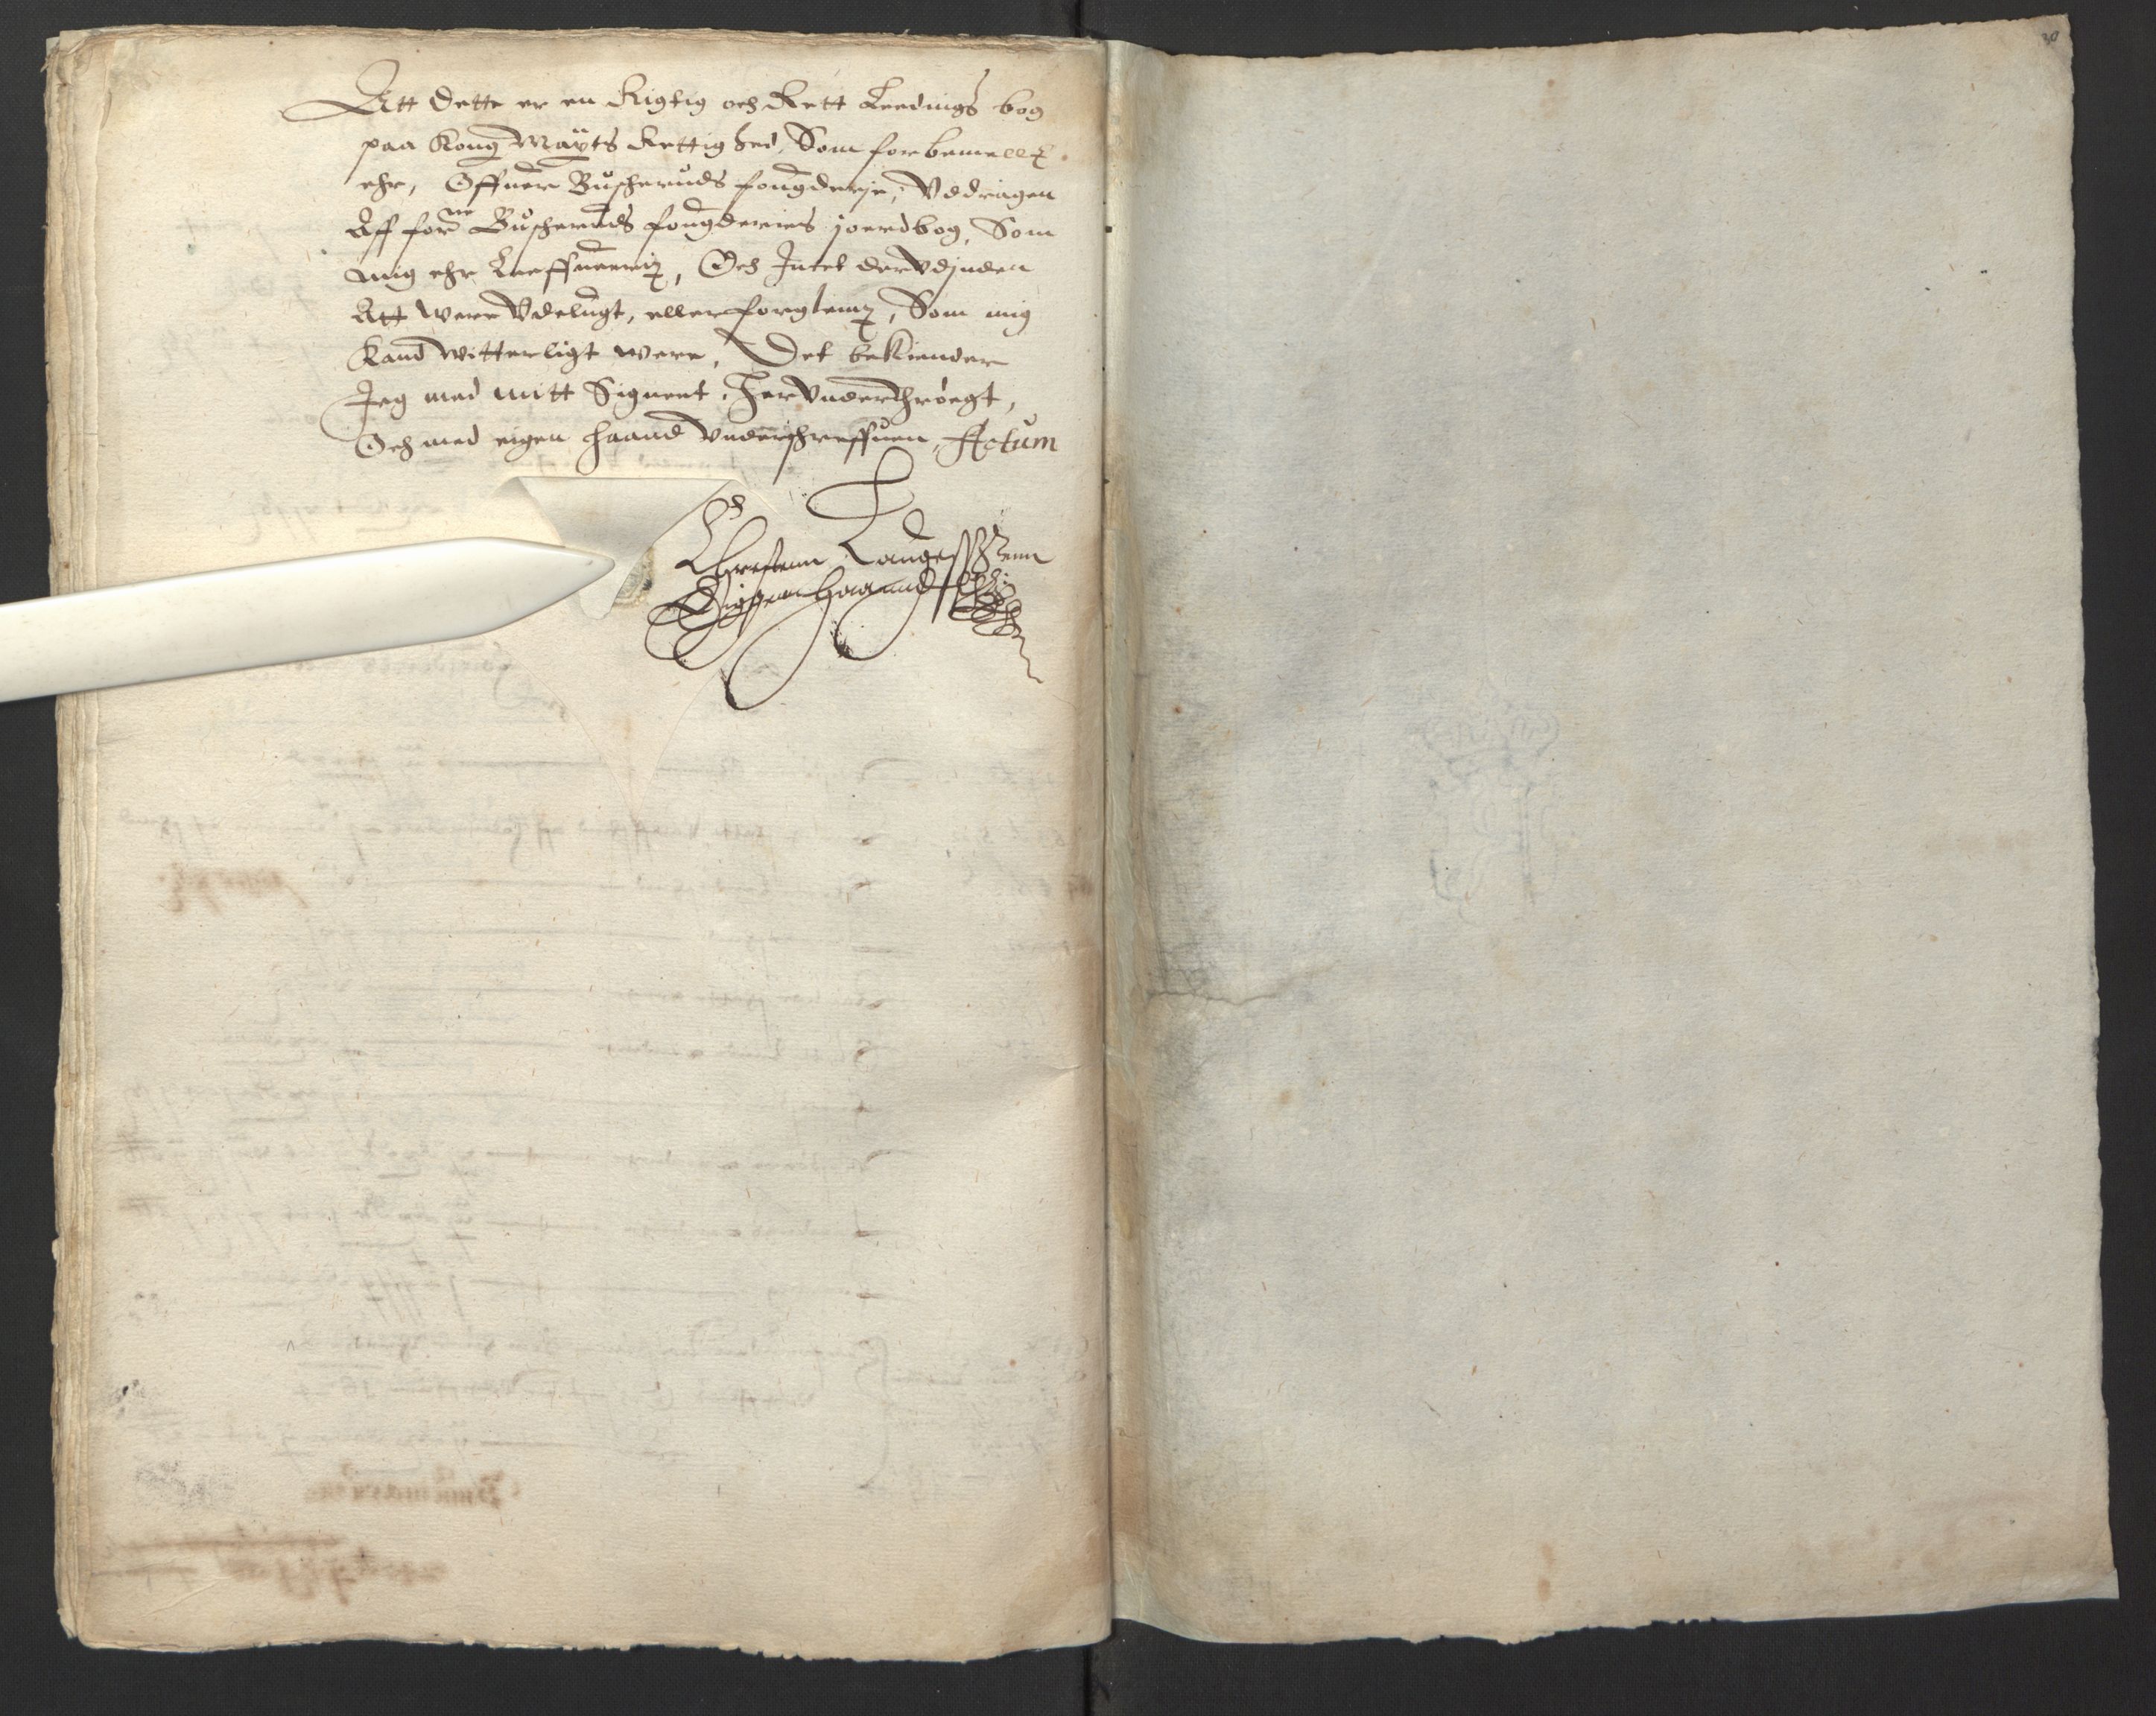 30
Att dette er en Rigtig och Rett Leedings bog
paa Kong Maÿts Rettighed, Som forbemelt
ehr, Offuer Buscheruds fougderje, Vddragen
Aff forne Buscheruds fougderies joerdbog, Som
mig ehr Leeffuerit, Och Intet der Vdjnden
Att were Vdelugt, eller forglemt, Som mig
Kand witterligt were, Det bekiender
Jeg med mitt Signet, Her Vnderthrøegt,
Och med eigen haand Vnderschreffuen, Actum
Christenn Laugessenn
Eigen Haannd